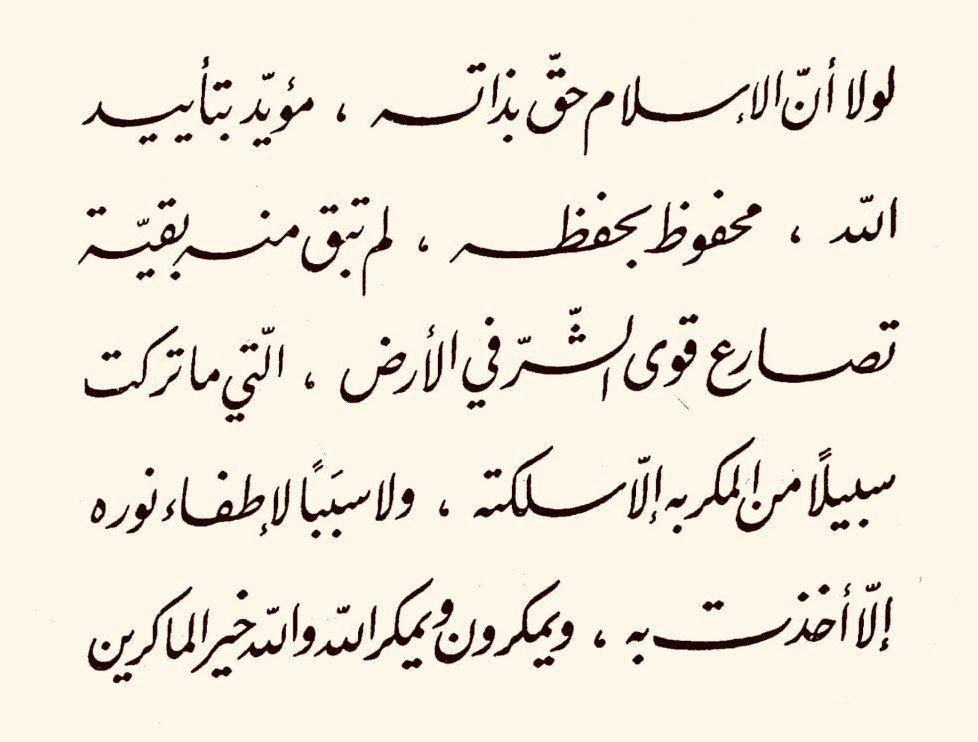 لولا أنّ الإسلام حقّ بذاته ، مؤيّد بتأييد
الله ، محفوظ بحفظه ، لم تبق منه بقيّة
تصارع قوى الشّرّ في الأرض ، الّتي ما تركت
سبيلًا من المكر به إلّا سلكته ، ولا سبَبًا لإطفاء نوره
إلّا أخذت به ، ويمكرون ويمكر الله والله خير الماكرين